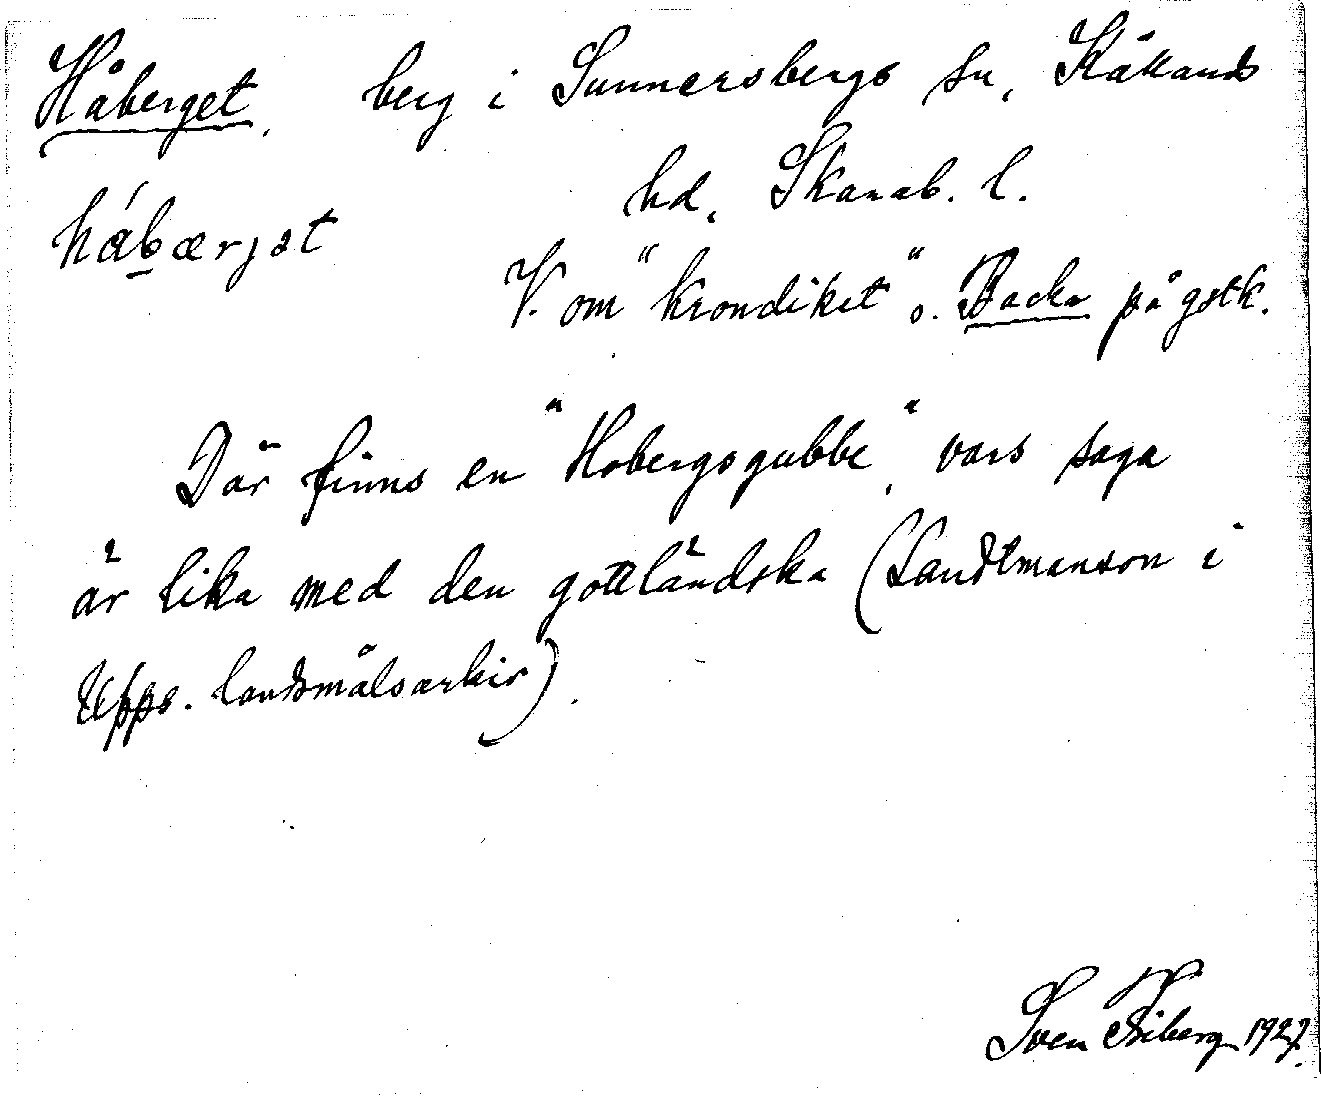 Håberget, berg i Sunnersbergs sn, Kållands
hd, Skarab. l.
hábærjət
V. om "Krondiket" o. Backa på gstk.
Där finns en "Hobergsgubbe", vars saga
är lika med den gottländska (Landtmanson i
Upps. landsmålsarkiv).
Sven Friberg 1927.